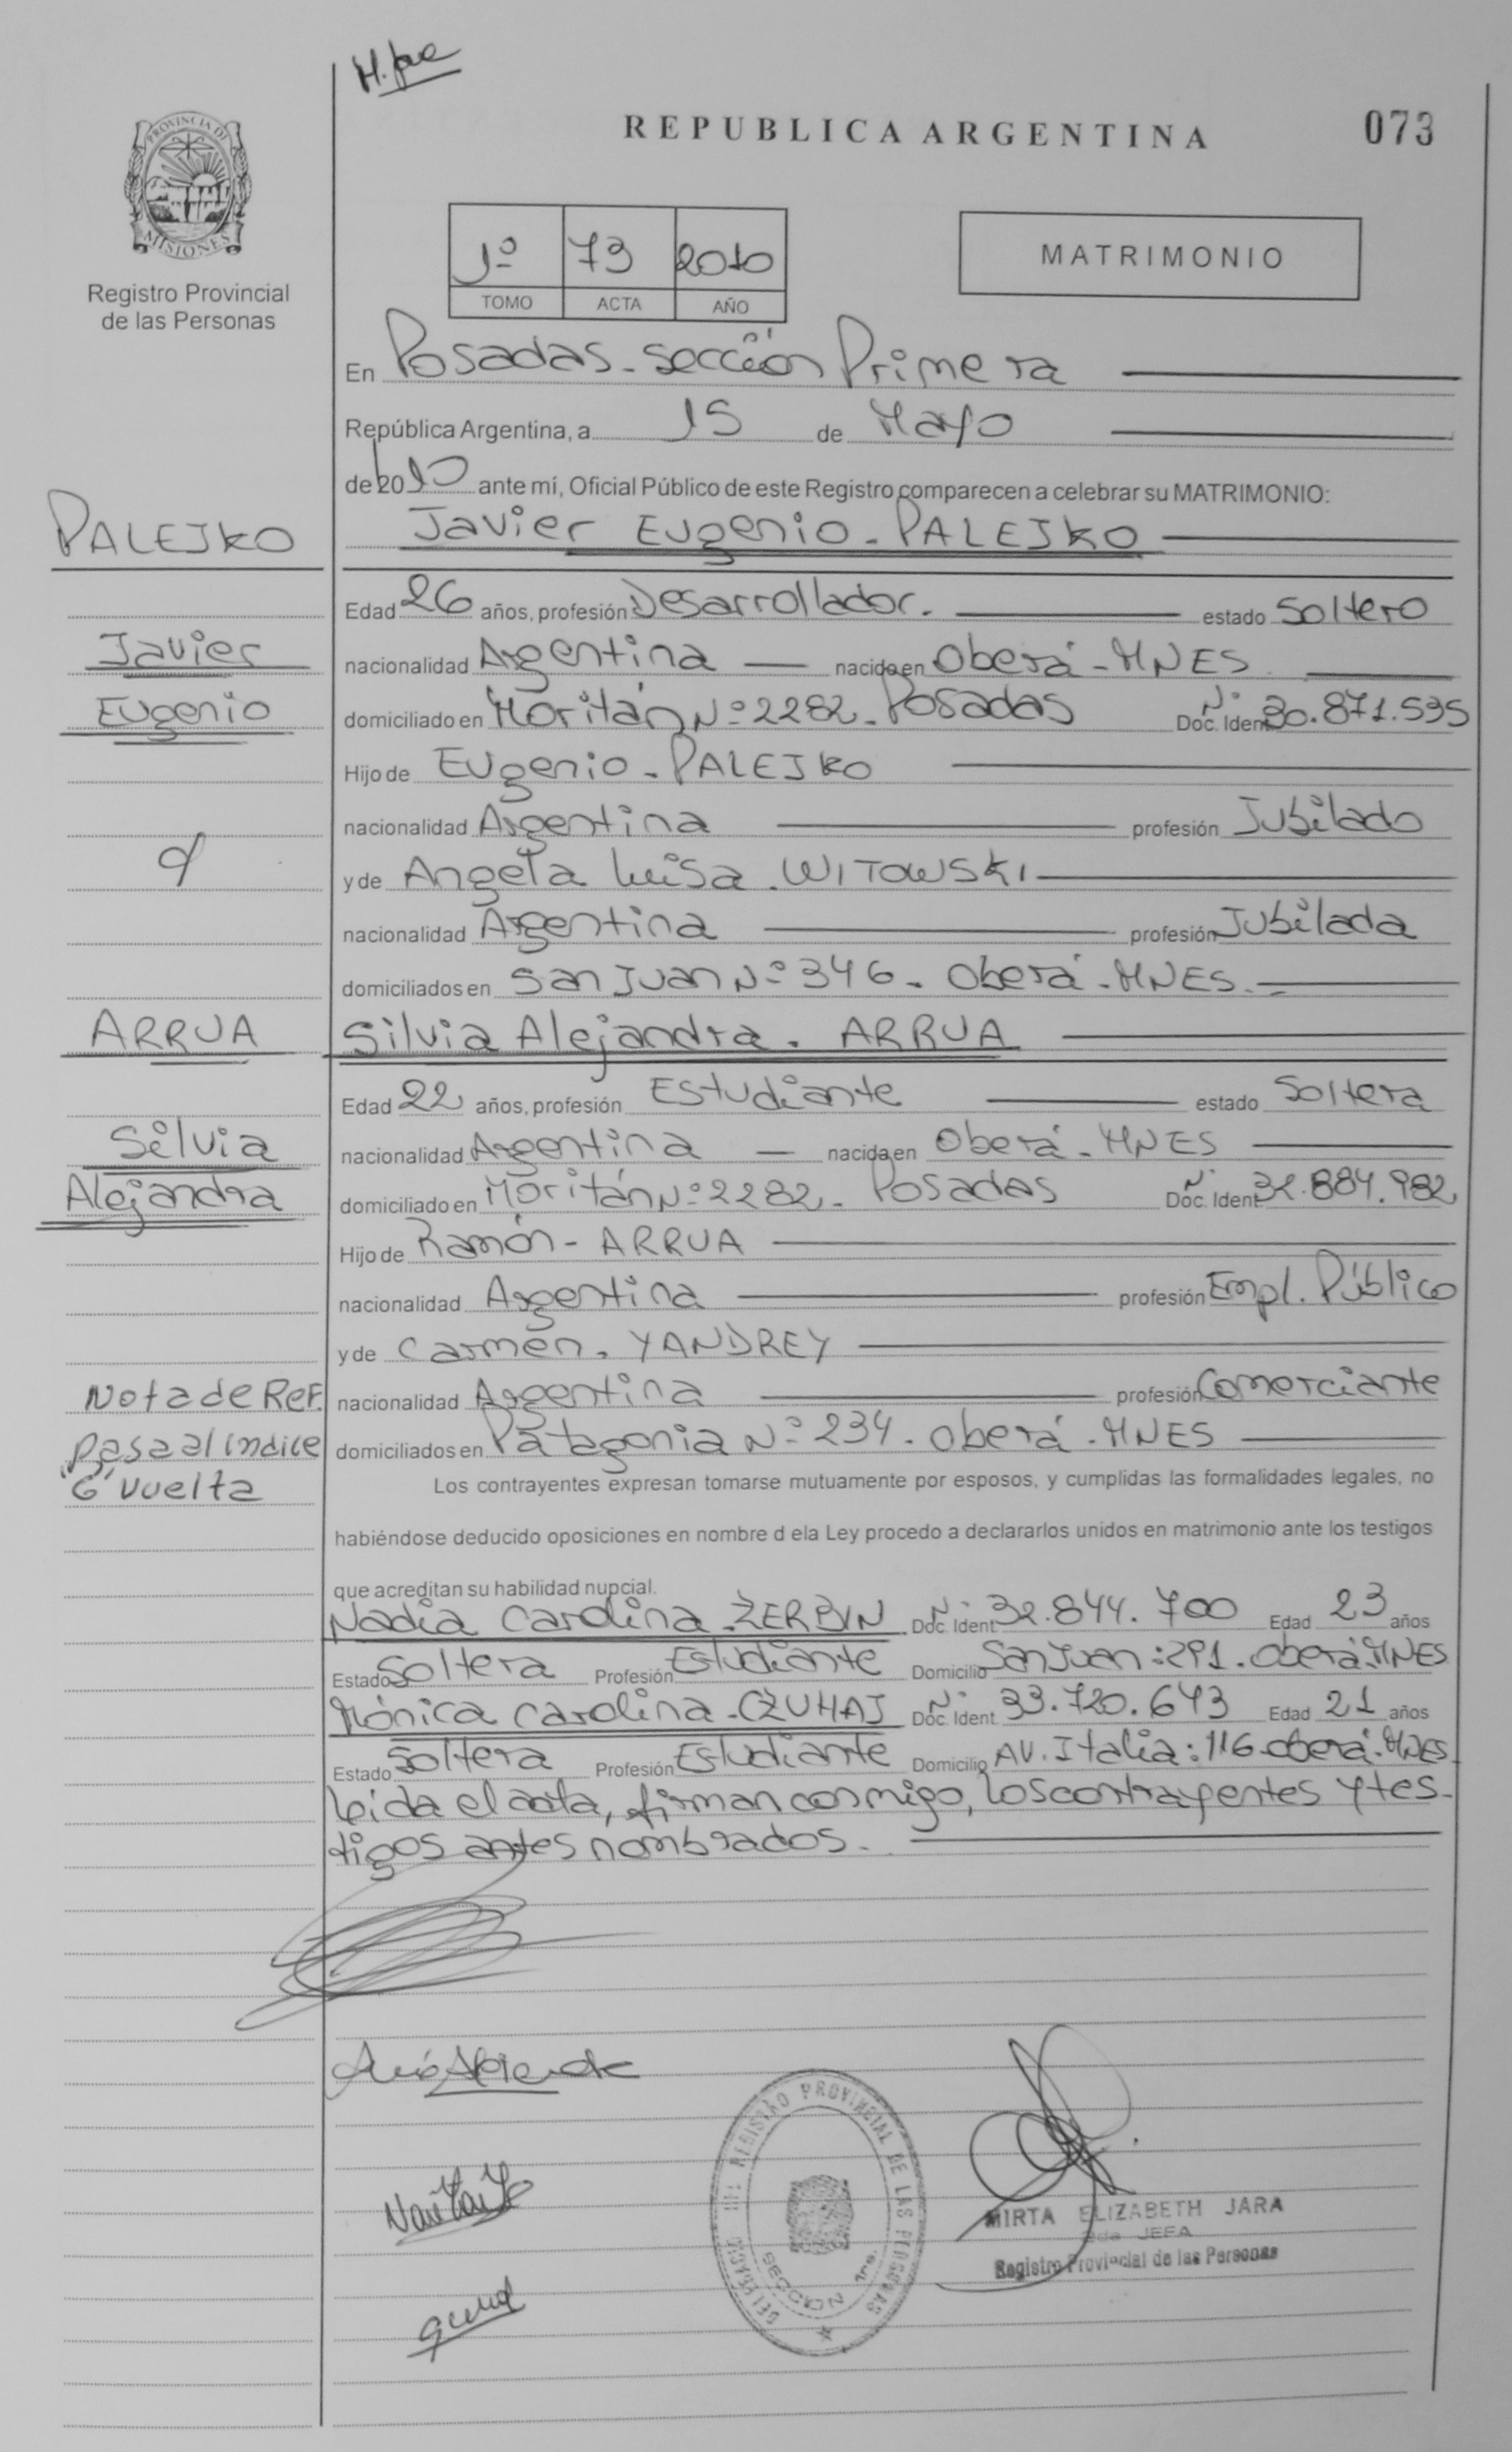 REPUBLICA ARGENTINA
073
PROVINCIA DE
MISIONES
Registro Provincial
de las Personas
1º 73 2010
TOMO ACTA AÑO
MATRIMONIO
En Posadas - sección Primera
República Argentina, a 15 de Mayo
de 2010 ante mí, Oficial Público de este Registro comparecen a celebrar su MATRIMONIO:
PALEJKO
Javier Eugenio - PALEJKO
Edad 26 años, profesión Desarrollador. estado Soltero
Javier
nacionalidad Argentina — nacido en Oberá - MNES
Eugenio
domiciliado en Moritán Nº 2282 - Posadas Doc. Ident. Nº 30.871.535
Hijo de Eugenio - PALEJKO
nacionalidad Argentina profesión Jubilado
y de Angela Luisa . WITOWSKI
nacionalidad Argentina profesión Jubilada
domiciliados en San Juan Nº 346 - Oberá - MNES.
ARRUA
Silvia Alejandra . ARRUA
Edad 22 años, profesión Estudiante estado Soltera
Silvia
nacionalidad Argentina — nacida en Oberá - MNES
Alejandra
domiciliado en Moritán Nº 2282 - Posadas Doc. Ident. Nº 32.884.982
Hijo de Ramón - ARRUA
nacionalidad Argentina profesión Empl. Público
y de Carmen . YANDREY
Nota de Ref.
nacionalidad Argentina profesión Comerciante
pasa al índice
domiciliados en Patagonia Nº 234 - Oberá - MNES
"G" vuelta
Los contrayentes expresan tomarse mutuamente por esposos, y cumplidas las formalidades legales, no
habiéndose deducido oposiciones en nombre d ela Ley procedo a declararlos unidos en matrimonio ante los testigos
que acreditan su habilidad nupcial.
Nadia Carolina . ZERBIN Doc. Ident. Nº 32.844.700 Edad 23 años
Estado Soltera Profesión Estudiante Domicilio San Juan : 291 . Oberá MNES
Mónica Carolina - CZUHAJ Doc. Ident. Nº 33.720.643 Edad 21 años
Estado Soltera Profesión Estudiante Domicilio AV. Italia : 116 - Oberá - MNES
Leida el acta, firman conmigo, los contrayentes y tes-
tigos antes nombrados.
DEL REGISTRO PROVINCIAL DE LAS PERSONAS
SECCION 1ra.
MIRTA ELIZABETH JARA
2da JEFA
Registro Provincial de las Personas